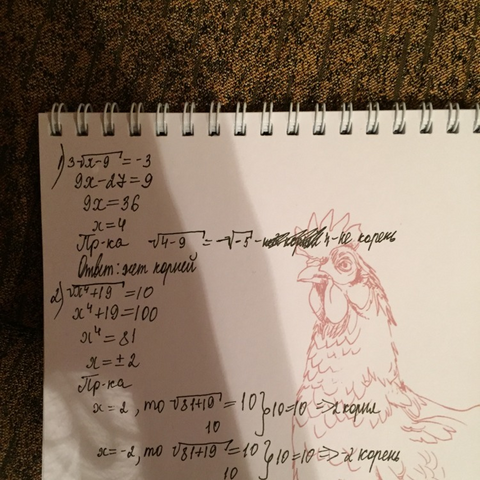 1) 3√x-9 = -3
9x-27=9
9x=36
x=4
Пр-ка √4-9 = √-5 - 4-не корень
Ответ: нет корней
2) √x⁴+19 = 10
x⁴+19=100
x⁴=81
x=±2
Пр-ка
x=2, то √81+19 = 10 } 10=10 => 2 корня
10
x=-2, то √81+19 = 10 } 10=10 => -2 корень
10